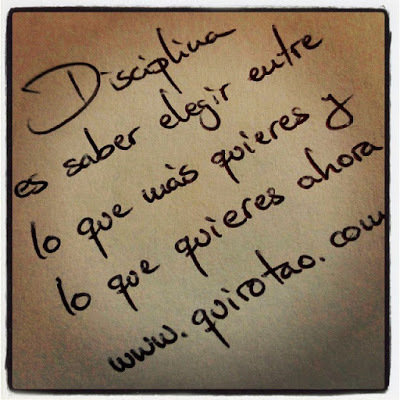 Disciplina
es saber elegir entre
lo que más quieres y
lo que quieres ahora
www.quirotao.com